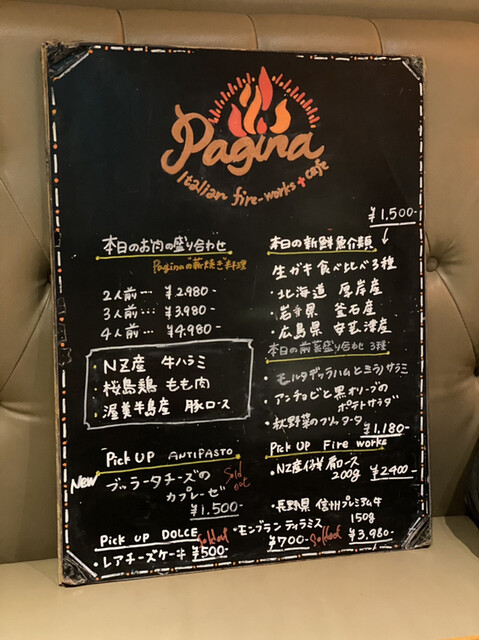 Pagina
Italian fire-works + cafe
本日のお肉の盛り合わせ
Paginaの"薪焼き"料理
2人前… ¥2.980-
3人前… ¥3.980-
4人前… ¥4.980-
・NZ産 牛ハラミ
・桜島鶏 もも肉
・渥美半島産 豚ロース
Pick UP ANTIPASTO
New
・ブッラータチーズの
カプレーゼ
Sold out
¥1.500-
Pick UP DOLCE
・レアチーズケーキ ¥500-
¥1.500-
本日の新鮮魚介類
生ガキ食べ比べ3種
・北海道 厚岸産
・岩手県 釜石産
・広島県 安芸津産
本日の前菜盛り合わせ 3種
・モルタデッラハムとミラノサラミ
・アンチョビと黒オリーブの
ポテトサラダ
・秋野菜のフリッタータ
¥1,180-
Pick UP Fire works
・NZ産仔羊 肩ロース
200g ¥2400-
・長野県 信州プレミアム牛
150g
¥3,980-
・モンブランティラミス
¥700-